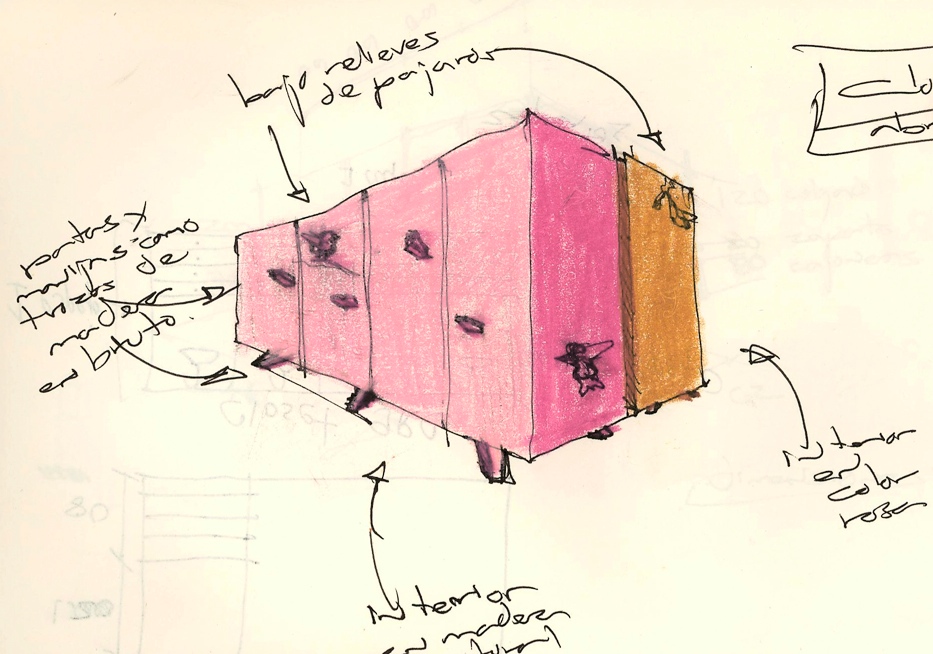 bajo relieves
de pajaros
patas y
manijas como
trozos de
madera
en bruto.
Clo
abr
interior
en
color
rosa
interior
en madera
Closet
80